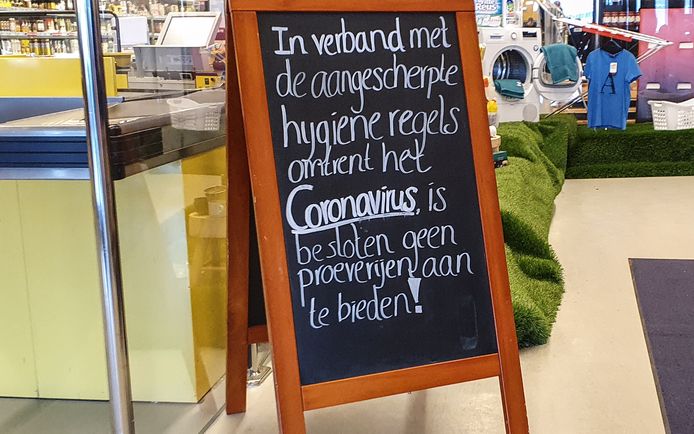 In verband met
de aangescherpte
hygiene regels
omtrent het
Coronavirus, is
besloten geen
proeverijen aan
te bieden!